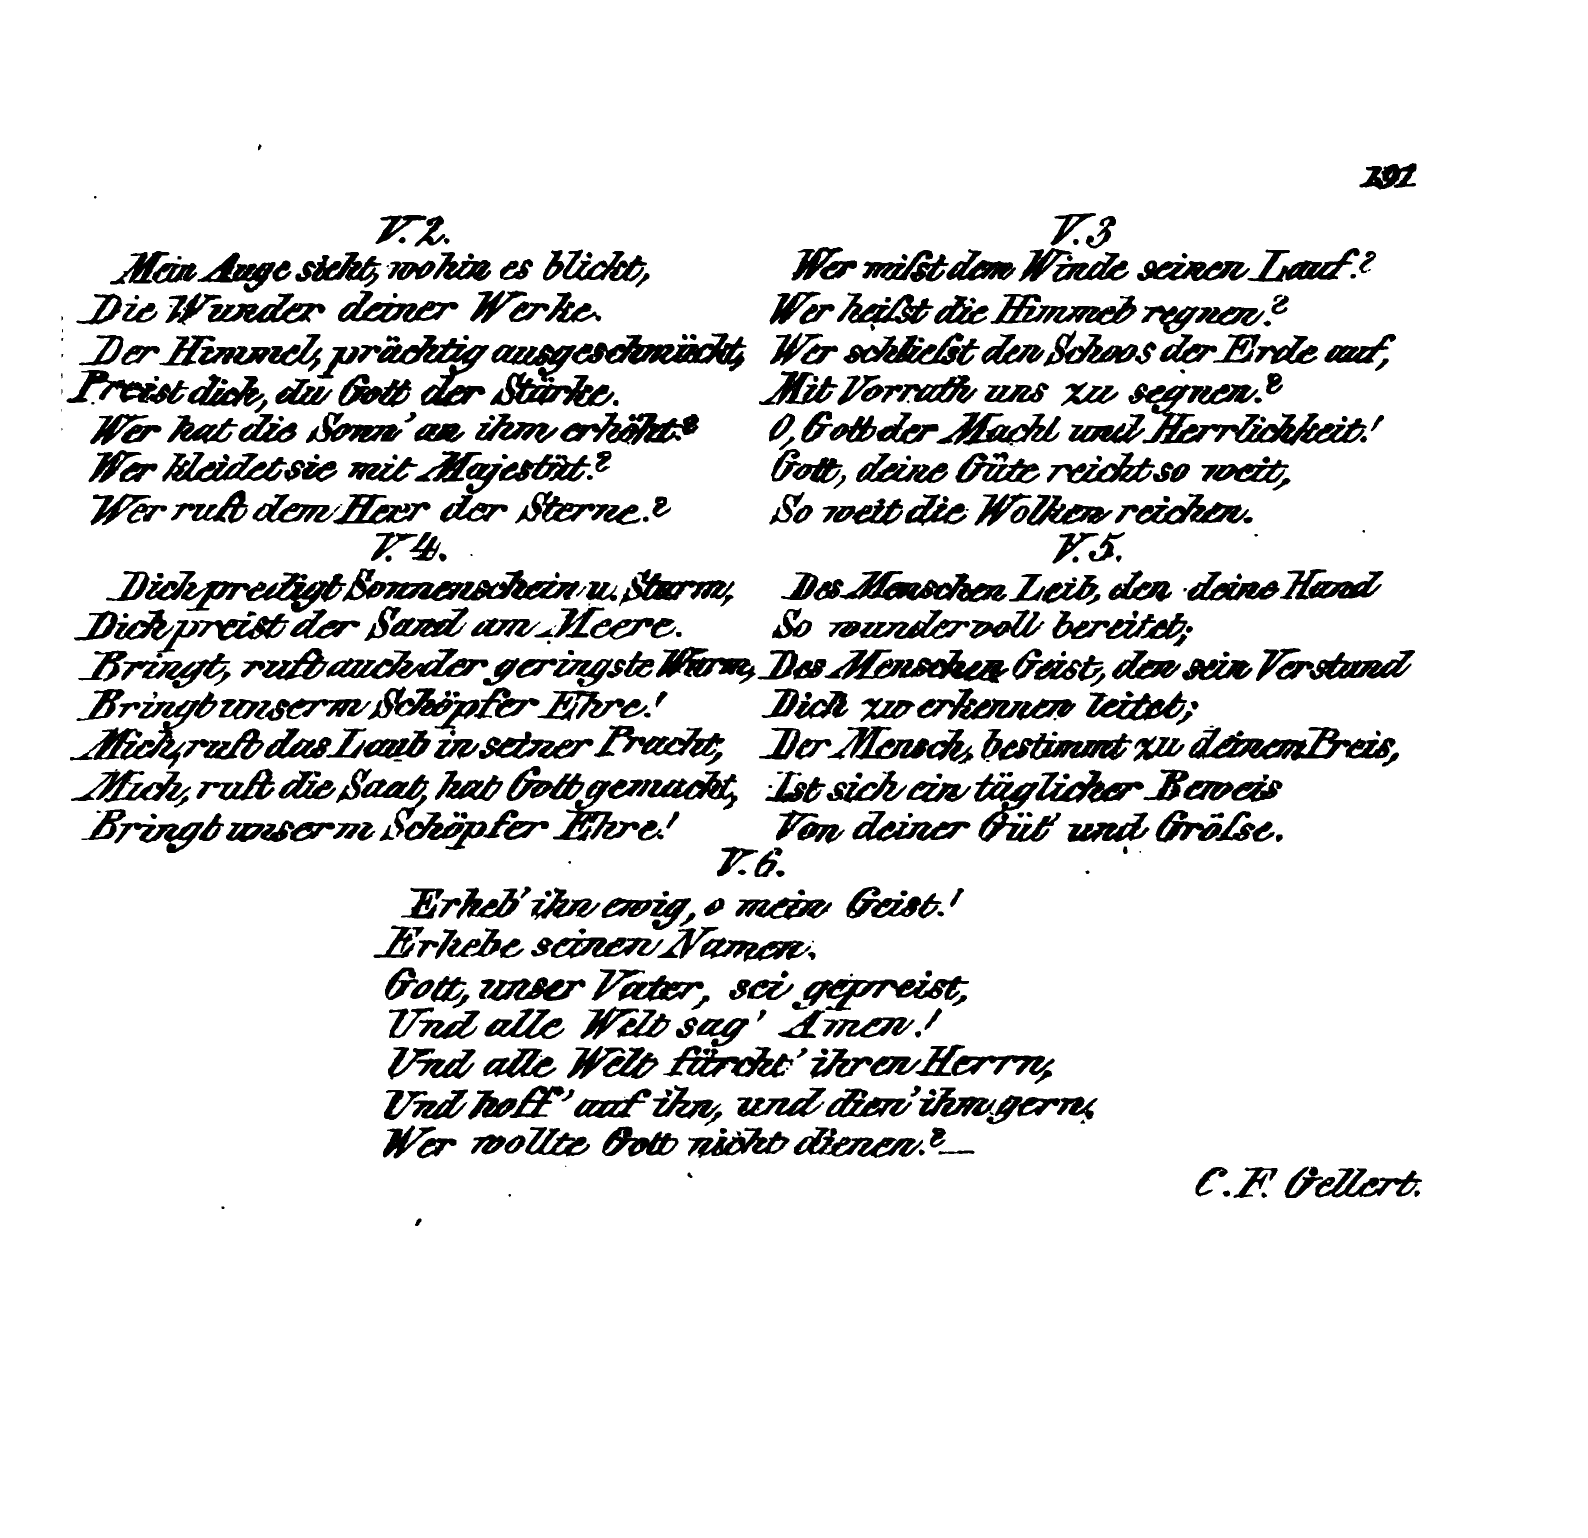 191
V. 2.
Mein Auge sieht, wohin es blickt,
Die Wunder deiner Werke.
Der Himmel, prächtig ausgeschmückt,
Preist dich, du Gott der Stärke.
Wer hat die Sonn' an ihm erhöht?
Wer kleidet sie mit Majestät?
Wer ruft dem Heer der Sterne?
V. 3
Wer miſst dem Winde seinen Lauf?
Wer heiſst die Himmel regnen?
Wer schlieſst den Schoos der Erde auf,
Mit Vorrath uns zu segnen?
O, Gott der Macht und Herrlichkeit!
Gott, deine Güte reicht so weit,
So weit die Wolken reichen.
V. 4.
Dich predigt Sonnenschein u. Sturm,
Dich preist der Sand am Meere.
Bringt, ruft auch der geringste Wurm,
Bringt unserm Schöpfer Ehre!
Mich, ruft das Laub in seiner Pracht,
Mich, ruft die Saat, hat Gott gemacht,
Bringt unserm Schöpfer Ehre!
V. 5.
Des Menschen Leib, den deine Hand
So wundervoll bereitet;
Des Menschen Geist, den sein Verstand
Dich zu erkennen leitet;
Der Mensch, bestimmt zu deinem Preis,
Ist sich ein täglicher Beweis
Von deiner Güt' und Gröſse.
V. 6.
Erheb' ihn ewig, o mein Geist!
Erhebe seinen Namen.
Gott, unser Vater, sei gepreist,
Und alle Welt sag' Amen!
Und alle Welt fürcht' ihren Herrn,
Und hoff' auf ihn, und dien' ihm gern,
Wer wollte Gott nicht dienen? —
C. F. Gellert.